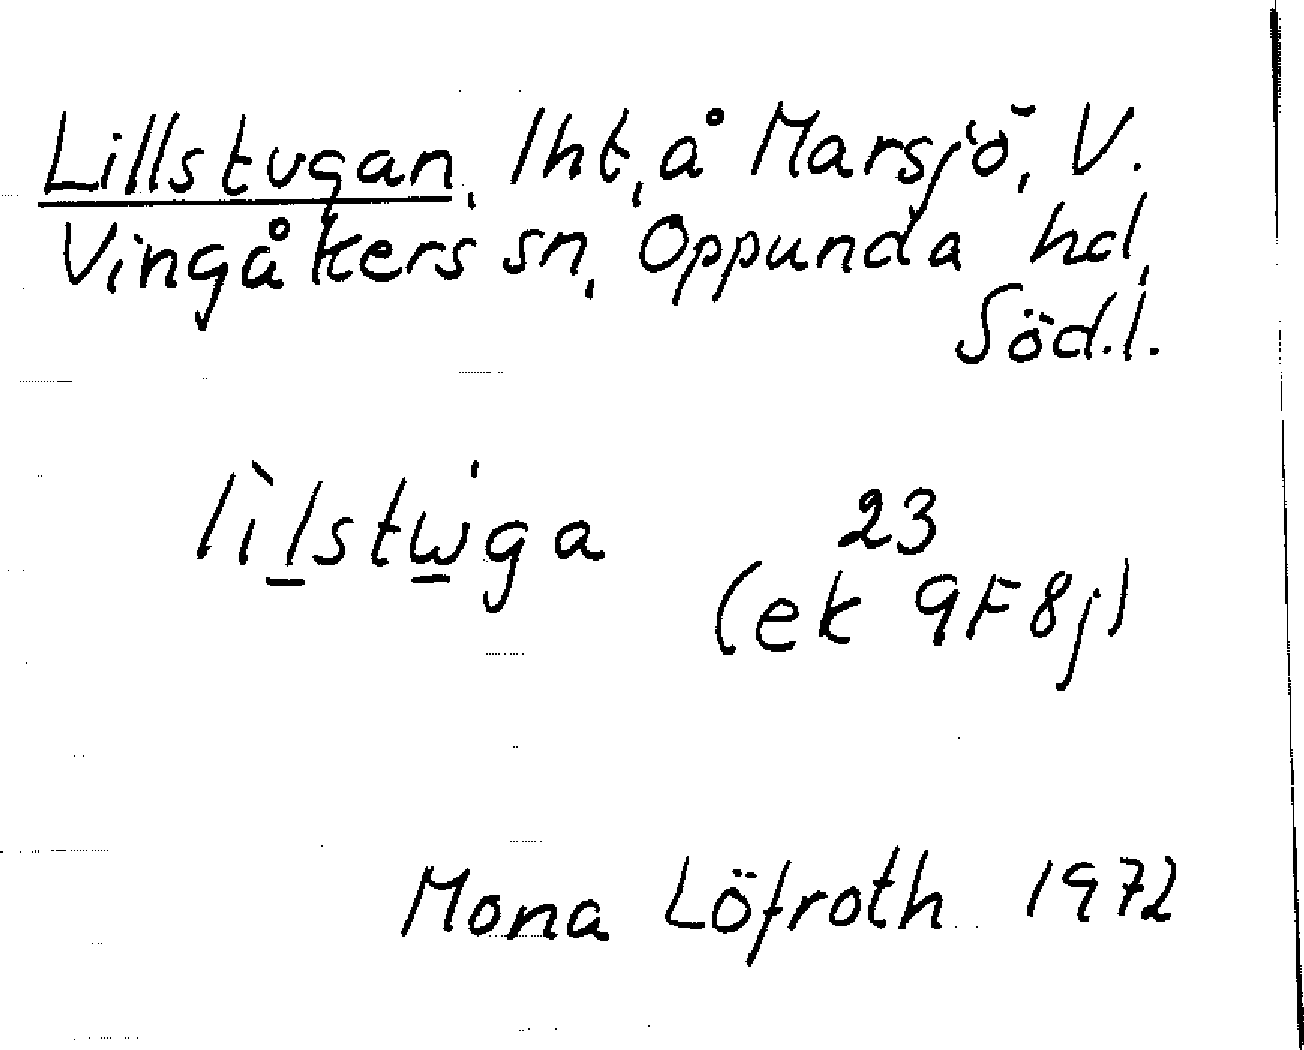 Lillstugan, lht, å Marsjö, V.
Vingåkers sn, Oppunda hd,
Söd.l.
lìl̲stɯ̲́ga 23
(ek 9F8j)
Mona Löfroth 1972